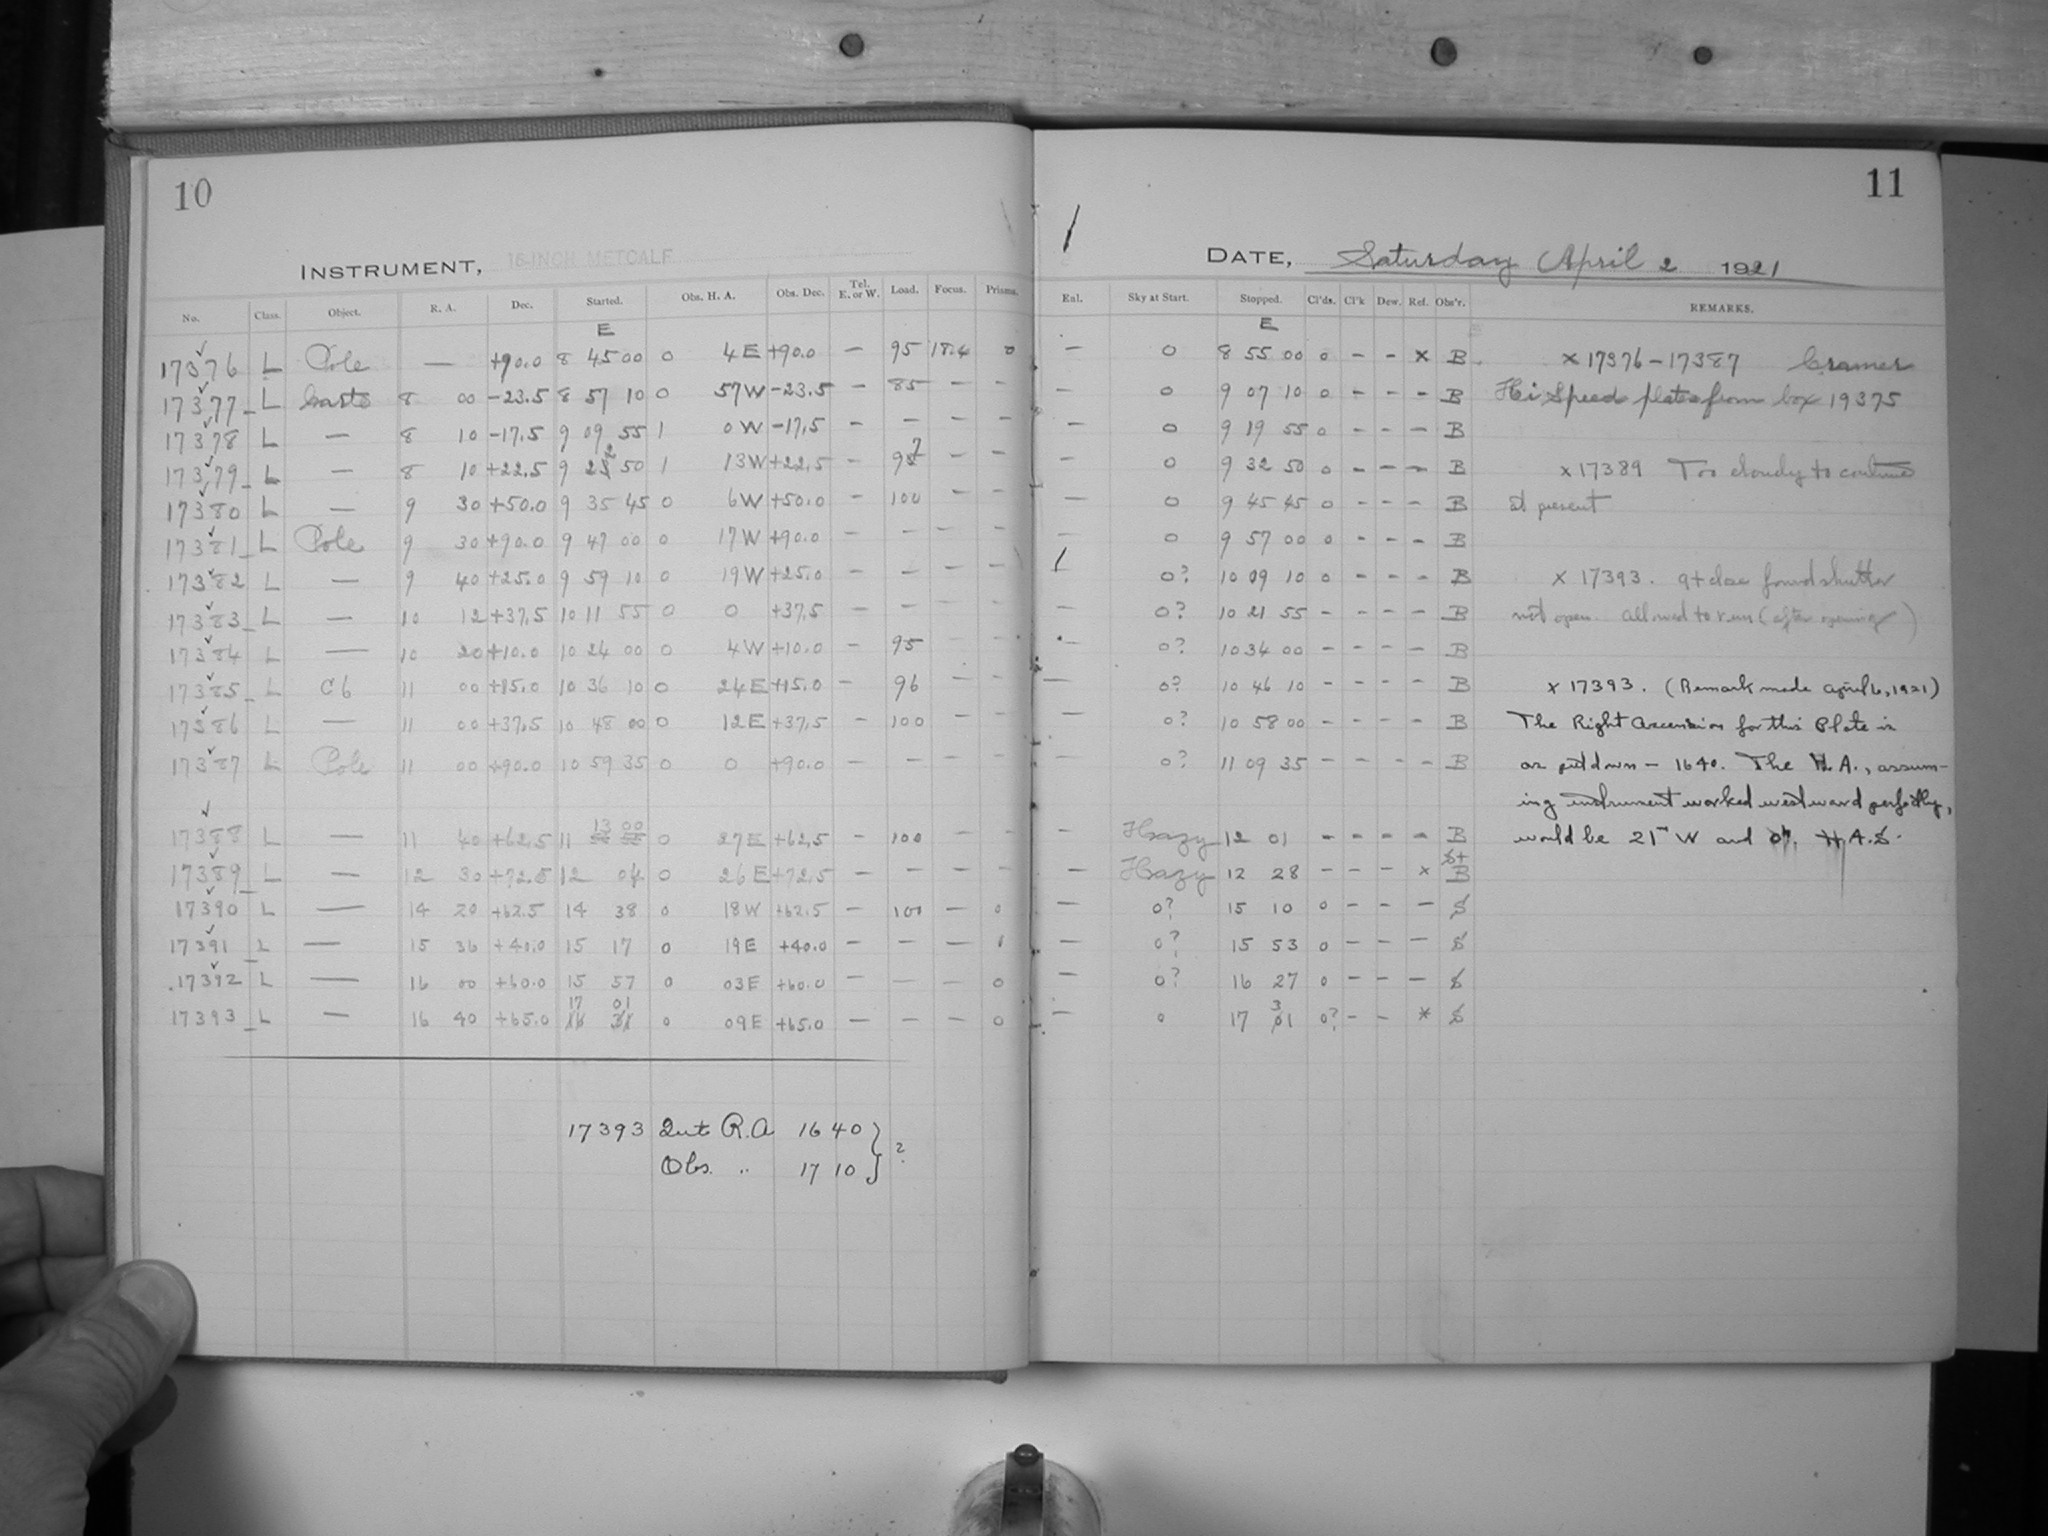 10
INSTRUMENT, 16-INCH METCALF
No. Class. Object. R. A. Dec. Started. Obs. H. A. Obs. Dec. Tel. E. or W. Load. Focus. Prisms.
E
17376 L Pole — +90.0 8 45 00 0 4 E +90.0 — 95 18.4 0
17377 L 8 00 -23.5 8 57 10 0 57 W -23.5 — 85 — —
17378 L — 8 10 -17.5 9 09 55 1 0 W -17.5 — — — —
17379 L — 8 10 +22.5 9 22 50 1 13 W +22.5 — 97 — —
17380 L — 9 30 +50.0 9 35 45 0 6 W +50.0 — 100 — —
17381 L Pole 9 30 +90.0 9 47 00 0 17 W +90.0 — — — —
17382 L — 9 40 +25.0 9 59 10 0 19 W +25.0 — — — —
17383 L — 10 12 +37.5 10 11 55 0 0 +37.5 — — — —
17384 L — 10 20 +10.0 10 24 00 0 4 W +10.0 — 95 — —
17385 L C6 11 00 +15.0 10 36 10 0 24 E +15.0 — 96 — —
17386 L — 11 00 +37.5 10 48 00 0 12 E +37.5 — 100 — —
17387 L Pole 11 00 +90.0 10 59 35 0 0 +90.0 — — — —
17388 L — 11 40 +62.5 11 13 00 0 27 E +62.5 — 100 — —
17389 L — 12 30 +72.5 12 04 0 26 E +72.5 — — — —
17390 L — 14 20 +62.5 14 38 0 18 W +62.5 — 100 — 0
17391 L — 15 36 +40.0 15 17 0 19 E +40.0 — — — 1
17392 L — 16 00 +60.0 15 57 0 03 E +60.0 — — — 0
17 01
17393 L — 16 40 +65.0 16 31 0 09 E +65.0 — — — 0
17393 R.A 16 40 } ?
Obs. " 17 10
11
DATE, Saturday April 2 1921
Enl. Sky at Start. Stopped. Cl'ds. Cl'k Dew. Ref. Obs'r. REMARKS.
E
— 0 8 55 00 0 - - x B x 17376-17387 Cramer
— 0 9 07 10 0 - - - B Hi Speed plates from box 19375
— 0 9 19 55 0 - - - B
— 0 9 32 50 0 - - - B x 17389 Too cloudy to continue
— 0 9 45 45 0 - - - B at present
— 0 9 57 00 0 - - - B
0? 10 09 10 0 - - - B x 17393. At close found shutter
— 0? 10 21 55 - - - - B not open. Allowed to run (after opening)
— 0? 10 34 00 - - - - B
— 0? 10 46 10 - - - - B x 17393. (Remark made April 6, 1921)
— 0? 10 58 00 - - - - B The Right Ascension for this Plate is
— 0? 11 09 35 - - - - B as put down - 1640. The H.A., assum-
ing instrument worked westward perfectly,
— Hazy 12 01 - - - - B would be 21m W and not H.A.S.
— Hazy 12 28 - - - x S+B
— 0? 15 10 0 - - - S
— 0? 15 53 0 - - - S
— 0? 16 27 0 - - - S
— 0 17 31 0? - - * S